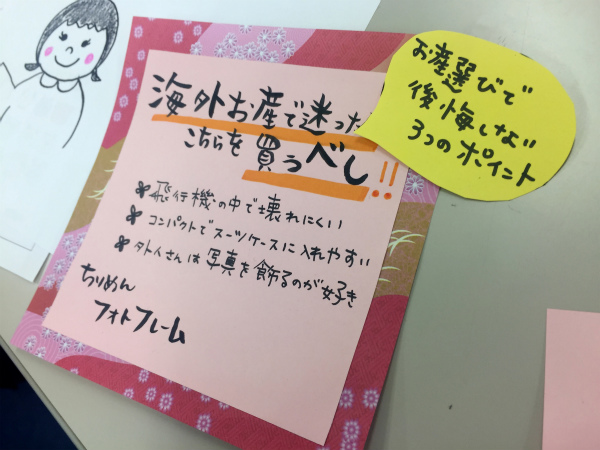 海外お産で迷った
こちらを買うべし!!
飛行機の中で壊れにくい
コンパクトでスーツケースに入れやすい
外人さんは写真を飾るのが好き
ちりめん
フォトフレーム
お産選びで
後悔しない
3つのポイント